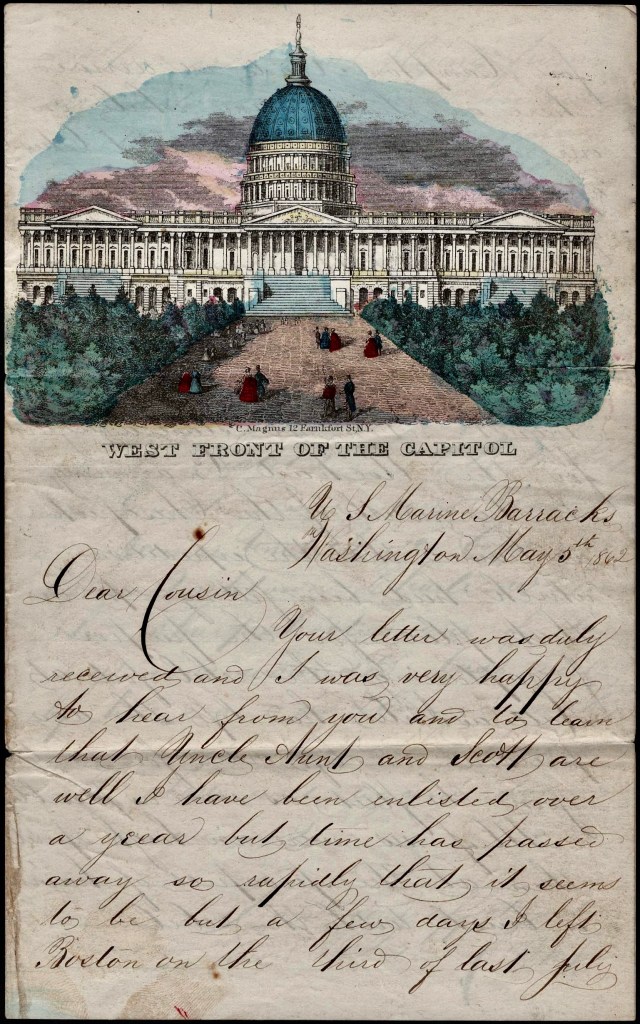 C. Magnus 12 Farnkfort St. N.Y.
WEST FRONT OF THE CAPITOL
U S Marine Barracks
Washington May 5th 1862
Dear Cousin
Your letter was duly
received and I was very happy
to hear from you and to learn
that Uncle Aunt and Scott are
well I have been enlisted over
a yeear but time has passed
away so rapidly that it seems
to be but a few days I left
Boston on the third of last July